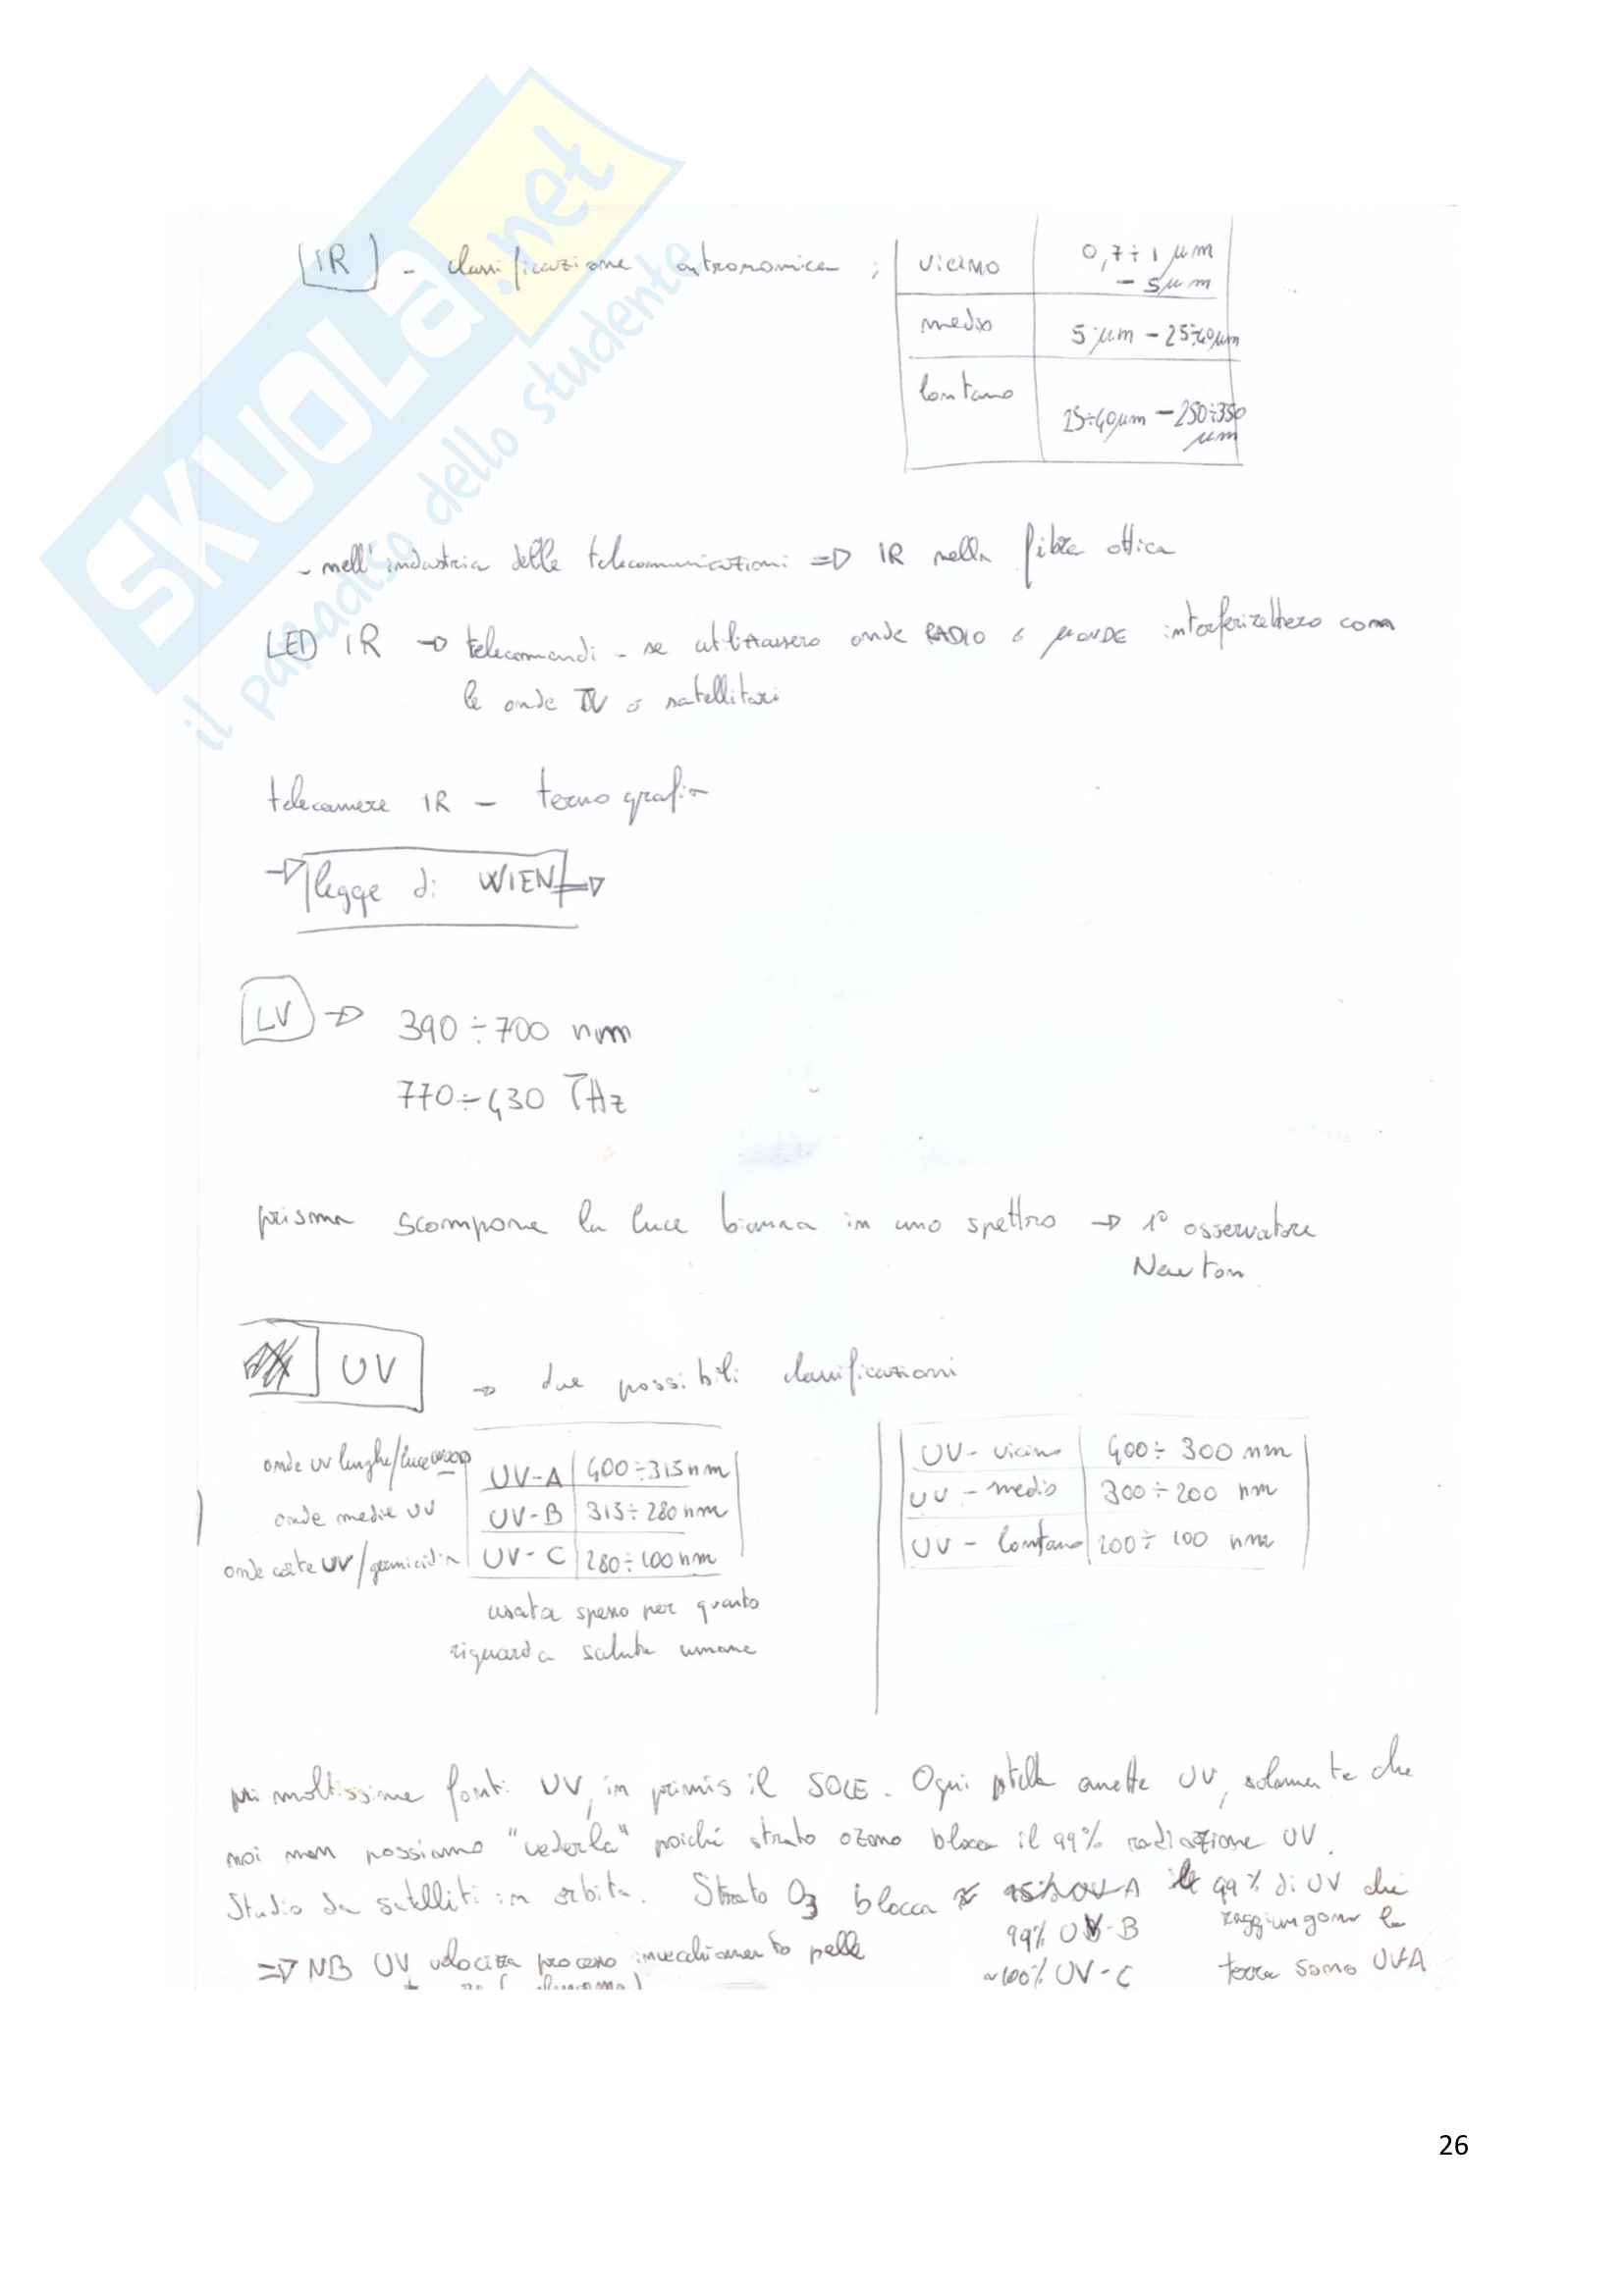 SKUOLA.net
il paradiso dello studente
IR - classificazione astronomica ;
vicino 0,7÷1 μm - 5μm
medio 5 μm - 25÷40μm
lontano 25÷40μm - 250÷350 μm
- nell'industria delle telecomunicazioni => IR nella fibra ottica
LED IR → telecomandi - se utilizzassero onde RADIO o μONDE interferirebbero con
le onde TV o satellitari
telecamere IR - termografia
→ legge di WIEN =>
LV → 390÷700 nm
770÷430 THz
prisma scompone la luce bianca in uno spettro → 1° osservatore
Newton
UV → due possibili classificazioni
onde UV lunghe/luce WOOD UV-A 400÷315nm
onde medie UV UV-B 315÷280nm
onde corte UV/germicida UV-C 280÷100nm
usata spesso per quanto
riguarda salute umana
UV-vicino 400÷300 nm
UV-medio 300÷200 nm
UV-lontano 200÷100 nm
moltissime fonti UV, in primis il SOLE. Ogni stella emette UV, solamente che
noi non possiamo "vederla" poiché strato ozono blocca il 99% radiazione UV.
Studio da satelliti in orbita. Strato O3 blocca 95% UV-A 99% di UV che
99% UV-B raggiungono la
=> NB UV velocizza processo invecchiamento pelle
~100% UV-C terra sono UVA
26